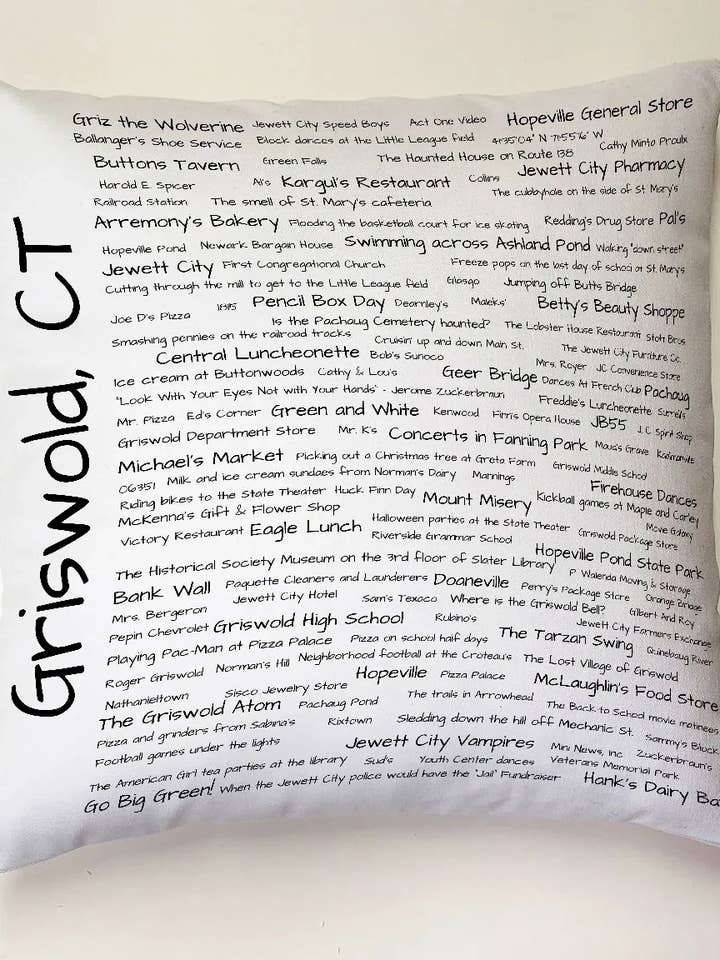 Griswold, CT
Griz the Wolverine Jewett City Speed Boys Act One Video Hopeville General Store
Ballanger's Shoe Service Block dances at the Little League field 41°35'04" N 71°55'16" W Cathy Minto Proulx
Buttons Tavern Green Falls The Haunted House on Route 138 Jewett City Pharmacy
Harold E. Spicer Al's Kargul's Restaurant Collins The cubbyhole on the side of St. Mary's
Railroad Station The smell of St. Mary's cafeteria
Arremony's Bakery Flooding the basketball court for ice skating Redding's Drug Store Pal's
Hopeville Pond Newark Bargain House Swimming across Ashland Pond Walking "down street"
Jewett City First Congregational Church Freeze pops on the last day of school at St. Mary's
Cutting through the mill to get to the Little League field Glasgo Jumping off Butts Bridge
Joe D's Pizza Pencil Box Day Dearnley's Maleks' Betty's Beauty Shoppe
Is the Pachaug Cemetery haunted? The Lobster House Restaurant Stott Bros
Smashing pennies on the railroad tracks Cruisin' up and down Main St. The Jewett City Furniture Co.
Central Luncheonette Bob's Sunoco Mrs. Royer JC Convenience Store
Ice cream at Buttonwoods Cathy & Lou's Geer Bridge Dances At French Club Pachaug
"Look With Your Eyes Not with Your Hands" - Jerome Zuckerbraun Freddie's Luncheonette
Mr. Pizza Ed's Corner Green and White Kenwood Finn's Opera House JB55 J.C. Spirit Shop
Griswold Department Store Mr. K's Concerts in Fanning Park
Michael's Market Picking out a Christmas tree at Geto Farm Griswold Middle School
06351 Milk and ice cream sundaes from Norman's Dairy Mannings Firehouse Dances
Riding bikes to the State Theater Huck Finn Day Mount Misery Kickball games at Maple and Corley
McKenna's Gift & Flower Shop Halloween parties at the State Theater Griswold Package Store Movie Galaxy
Victory Restaurant Eagle Lunch Riverside Grammar School
The Historical Society Museum on the 3rd floor of Slater Library Hopeville Pond State Park
Bank Wall Paquette Cleaners and Launderers Doaneville Perry's Package Store P Walenda Moving & Storage
Mrs. Bergeron Jewett City Hotel Sam's Texaco Where is the Griswold Bell? Gilbert And Roy Orange Bridge
Pepin Chevrolet Griswold High School Rubino's Jewett City Farmers Exchange
Playing Pac-Man at Pizza Palace Pizza on school half days The Tarzan Swing Quinebaug River
Roger Griswold Norman's Hill Neighborhood football at the Croteau's The Lost Village of Griswold
Nathanieltown Sisco Jewelry Store Hopeville Pizza Palace McLaughlin's Food Store
The Griswold Atom Pachaug Pond The trails in Arrowhead The Back to School movie matinees
Pizza and grinders from Sabina's Rixtown Sledding down the hill off Mechanic St. Sammy's Block
Football games under the lights Jewett City Vampires Mini News, Inc Zuckerbraun's
The American Girl tea parties at the library Sud's Youth Center dances Veterans Memorial Park
Go Big Green! When the Jewett City police would have the "Jail" Fundraiser Hank's Dairy Ba